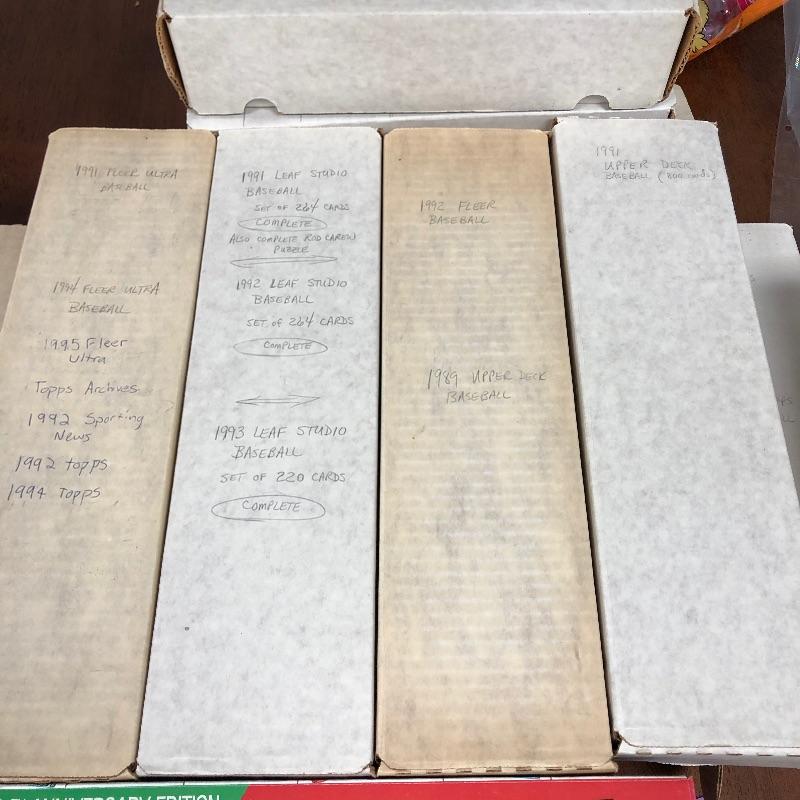 1991 FLEER ULTRA
BASEBALL
1994 FLEER ULTRA
BASEBALL
1995 Fleer
Ultra
Topps Archives
1992 Sporting
News
1992 topps
1994 Topps
1991 LEAF STUDIO
BASEBALL
SET OF 264 CARDS
COMPLETE
ALSO COMPLETE ROD CAREW
PUZZLE
1992 LEAF STUDIO
BASEBALL
SET OF 264 CARDS
COMPLETE
1993 LEAF STUDIO
BASEBALL
SET OF 220 CARDS
COMPLETE
1992 FLEER
BASEBALL
1989 UPPER DECK
BASEBALL
1991
UPPER DECK
BASEBALL (800 cards)
ANNIVERSARY EDITION